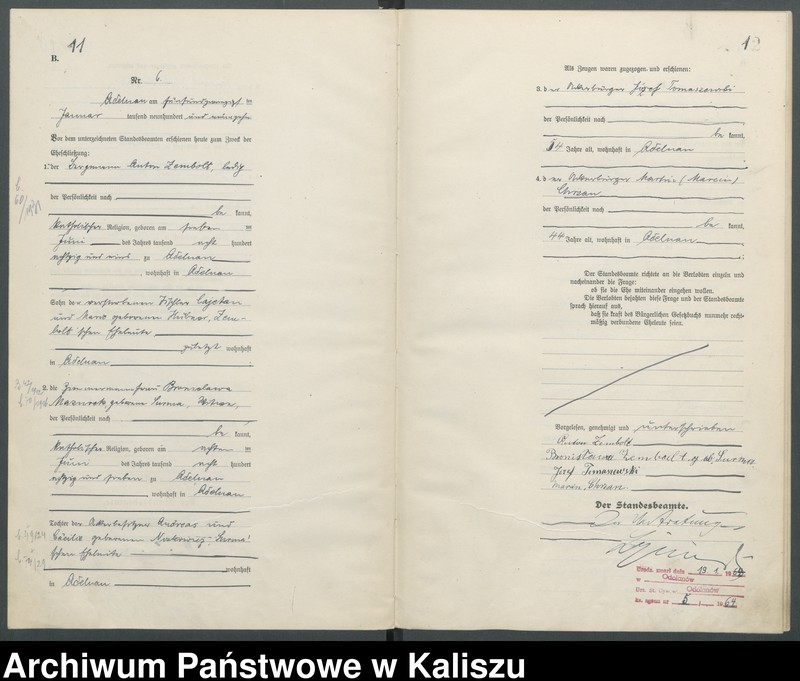 11
B.
Nr. 6.
Adelnau am fünfundzwanzigsten
Januar tausend neunhundert und neunzehn
Vor dem unterzeichneten Standesbeamten erschienen heute zum Zweck der
Eheschließung:
1. der Bergmann Anton Zembolt, ledig
der Persönlichkeit nach
be kannt,
katholischer Religion, geboren am sieben
Juni des Jahres tausend acht hundert
achtzig und zu Adelnau
, wohnhaft in Adelnau
Sohn der verstorbenen Tischler Cajetan
und geborenen Zem-
bolt'schen Eheleute
zuletzt wohnhaft
in Adelnau
2. die Zimmermannfrau Bronislawa
geborene Surma, Witwe,
der Persönlichkeit nach
be kannt,
katholischer Religion, geboren am achten
Juni des Jahres tausend acht hundert
achtzig und sieben zu Adelnau
, wohnhaft in Adelnau
Tochter der Ackerbesitzer Andreas und
Cäcilie geborenen Surma'
schen Eheleute
wohnhaft
in Adelnau
12
Als Zeugen waren zugezogen und erschienen:
3. d er Ackerbürger Józef Tomaszewski
der Persönlichkeit nach
be kannt,
Jahre alt, wohnhaft in Adelnau
4. d er Ackerbürger Martin (Marcin)
Chrzan
der Persönlichkeit nach
be kannt,
44 Jahre alt, wohnhaft in Adelnau
Der Standesbeamte richtete an die Verlobten einzeln und
nacheinander die Frage:
ob sie die Ehe miteinander eingehen wollen.
Die Verlobten bejahten diese Frage und der Standesbeamte
sprach hierauf aus,
daß sie kraft des Bürgerlichen Gesetzbuchs nunmehr recht-
mäßig verbundene Eheleute seien.
Vorgelesen, genehmigt und unterschrieben
Anton Zembolt
Bronisława Zembolt
Józef Tomaszewski
Marcin Chrzan
Der Standesbeamte.
In Vertretung
19.1. 1964
w Odolanów
Odolanów
5 / 1964
Archiwum Państwowe w Kaliszu